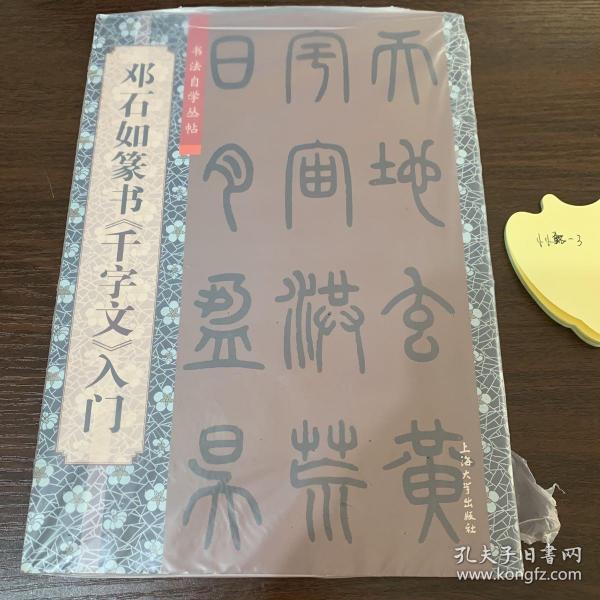 书法自学丛帖
邓石如篆书《千字文》入门
天地玄黄
宇宙洪荒
日月盈昃
上海大学出版社
孔夫子旧书网
www.kongfz.com